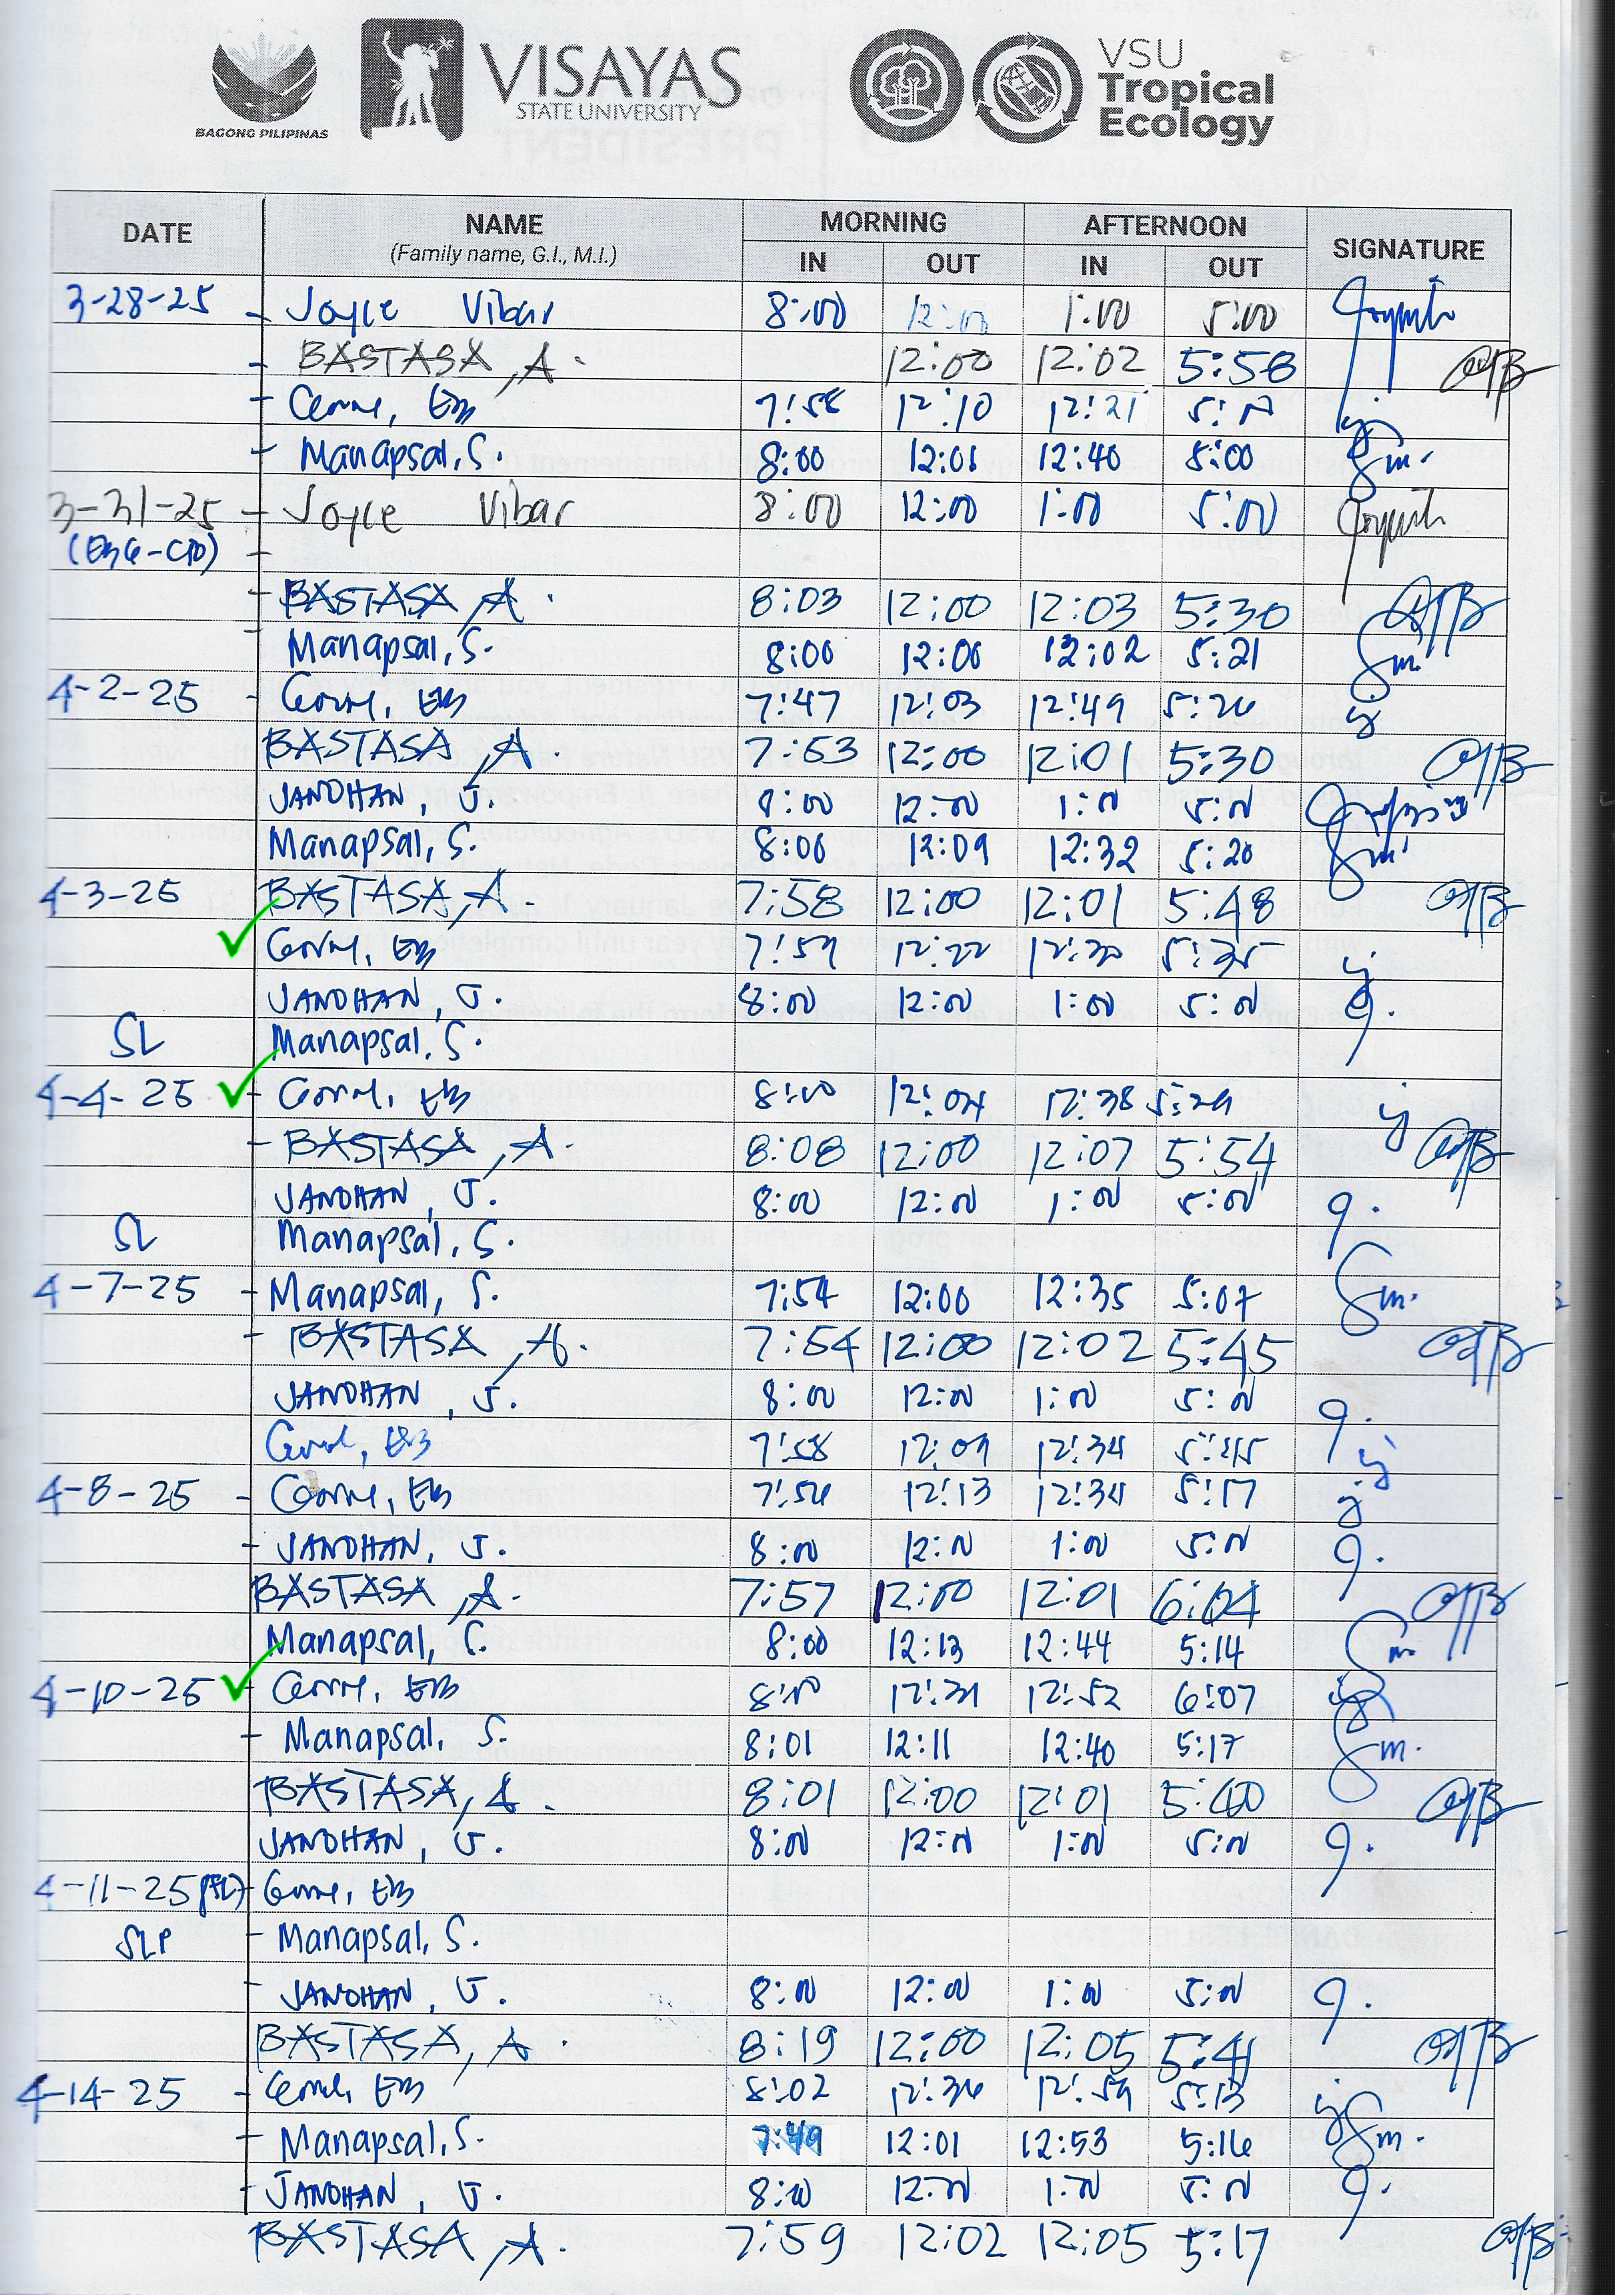 BAGONG PILIPINAS
VISAYAS
STATE UNIVERSITY
VSU
Tropical
Ecology
DATE NAME MORNING AFTERNOON SIGNATURE
(Family name, G.I., M.I.) IN OUT IN OUT
3-28-25 - Joyce Vibar 8:00 12:00 1:00 5:00
- BASTASA, A. 12:00 12:02 5:58
- 7:58 12:10 12:21
- Manapsal, S. 8:00 12:01 12:40 5:00
3-31-25 - Joyce Vibar 8:00 12:00 1:00 5:00
-
- BASTASA, A. 8:03 12:00 12:03 5:30
- Manapsal, S. 8:00 12:00 12:02 5:21
4-2-25 - 7:47 12:03 12:49 5:26
BASTASA, A. 7:53 12:00 12:01 5:30
JANDHAN, J. 8:00 12:00 1:00 5:00
Manapsal, S. 8:00 12:09 12:32 5:20
4-3-25 BASTASA, A. 7:58 12:00 12:01 5:48
7:59 12:22 5:35
JANDHAN, J. 8:00 12:00 1:00 5:00
SL Manapsal, S.
4-4-25 - 8:00 12:04 12:38 5:29
- BASTASA, A. 8:08 12:00 12:07 5:54
JANDHAN, J. 8:00 12:00 1:00 5:00
SL Manapsal, S.
4-7-25 - Manapsal, S. 7:54 12:00 12:35 5:07
- BASTASA, A. 7:54 12:00 12:02 5:45
JANDHAN, J. 8:00 12:00 1:00 5:00
7:58 12:09 12:34 5:45
4-8-25 - 7:56 12:13 12:34 5:17
- JANDHAN, J. 8:00 12:00 1:00 5:00
BASTASA, A. 7:57 12:00 12:01 6:04
Manapsal, S. 8:00 12:13 12:44 5:14
4-10-25 8:00 12:52 6:07
- Manapsal, S. 8:01 12:11 12:40 5:17
BASTASA, A. 8:01 12:00 12:01 5:40
JANDHAN, J. 8:00 12:00 1:00 5:00
4-11-25
SLP - Manapsal, S.
- JANDHAN, J. 8:00 12:00 1:00 5:00
BASTASA, A. 8:19 12:00 12:05 5:41
4-14-25 - 8:02 12:36 12:59 5:13
- Manapsal, S. 7:49 12:01 12:53 5:16
- JANDHAN, J. 8:00 12:00 1:00 5:00
BASTASA, A. 7:59 12:02 12:05 5:17